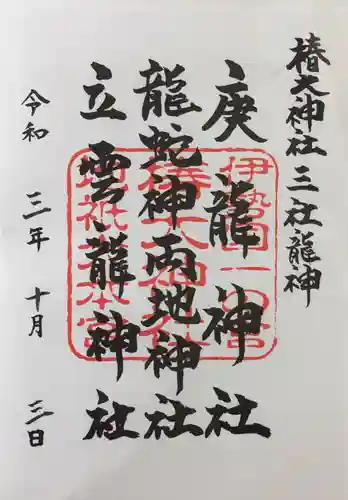 椿大神社三社龍神
庚龍神社
龍蛇神両地神社
立雲龍神社
令和三年十月三日
伊勢国一の宮
椿大神社
地祇大本宮